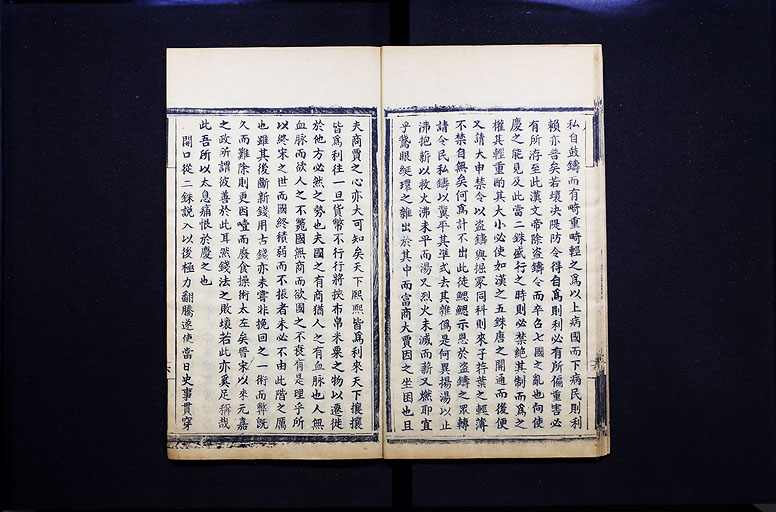 私自鼓鑄而有畸重畸輕之爲以上病國而下病民則利
賴亦普矣若壞决隄防令得自爲則利必有所偏重害必
有所洊至此漢文帝除盜鑄令而卒召七國之亂也向使
慶之能見及此當二銖盛行之時則必禁絶其制而爲之
權其輕重酌其大小必使如漢之五銖唐之開通而後便
又請大申禁令以盜鑄與掘冢同科則來子荇葉之輕薄
不禁自無矣何爲計不出此徒鰓鰓示恩於盜鑄之眾轉
請令民私鑄以冀平其準式去其雜僞是何異揚湯以止
沸抱薪以救火沸未平而湯又烈火未滅而薪又燃耶宜
乎鵞眼綖環之雜出於其中而富商大賈因之坐困也且
夫商賈之心亦大可知矣天下熙熙皆爲利來天下攘攘
皆爲利往一旦貨幣不行行將挾布帛米粟之物以遷徙
於他方必然之勢也夫國之有商猶人之有血脉也人無
血脉而欲人之不斃國無商而欲國之不衰有是理乎所
以終宋之世而國終積弱而不振者未必不由此階之厲
也雖其後斷新錢用古錢亦未嘗非挽回之一術而弊旣
久而難除則更因噎而廢食操術太左矣晉宋以來元嘉
之政所謂彼善於此耳然錢法之敗壞若此亦奚足稱哉
此吾所以太息痛恨於慶之也
開口從二銖説入以後極力翻騰遂使當日史事貫穿